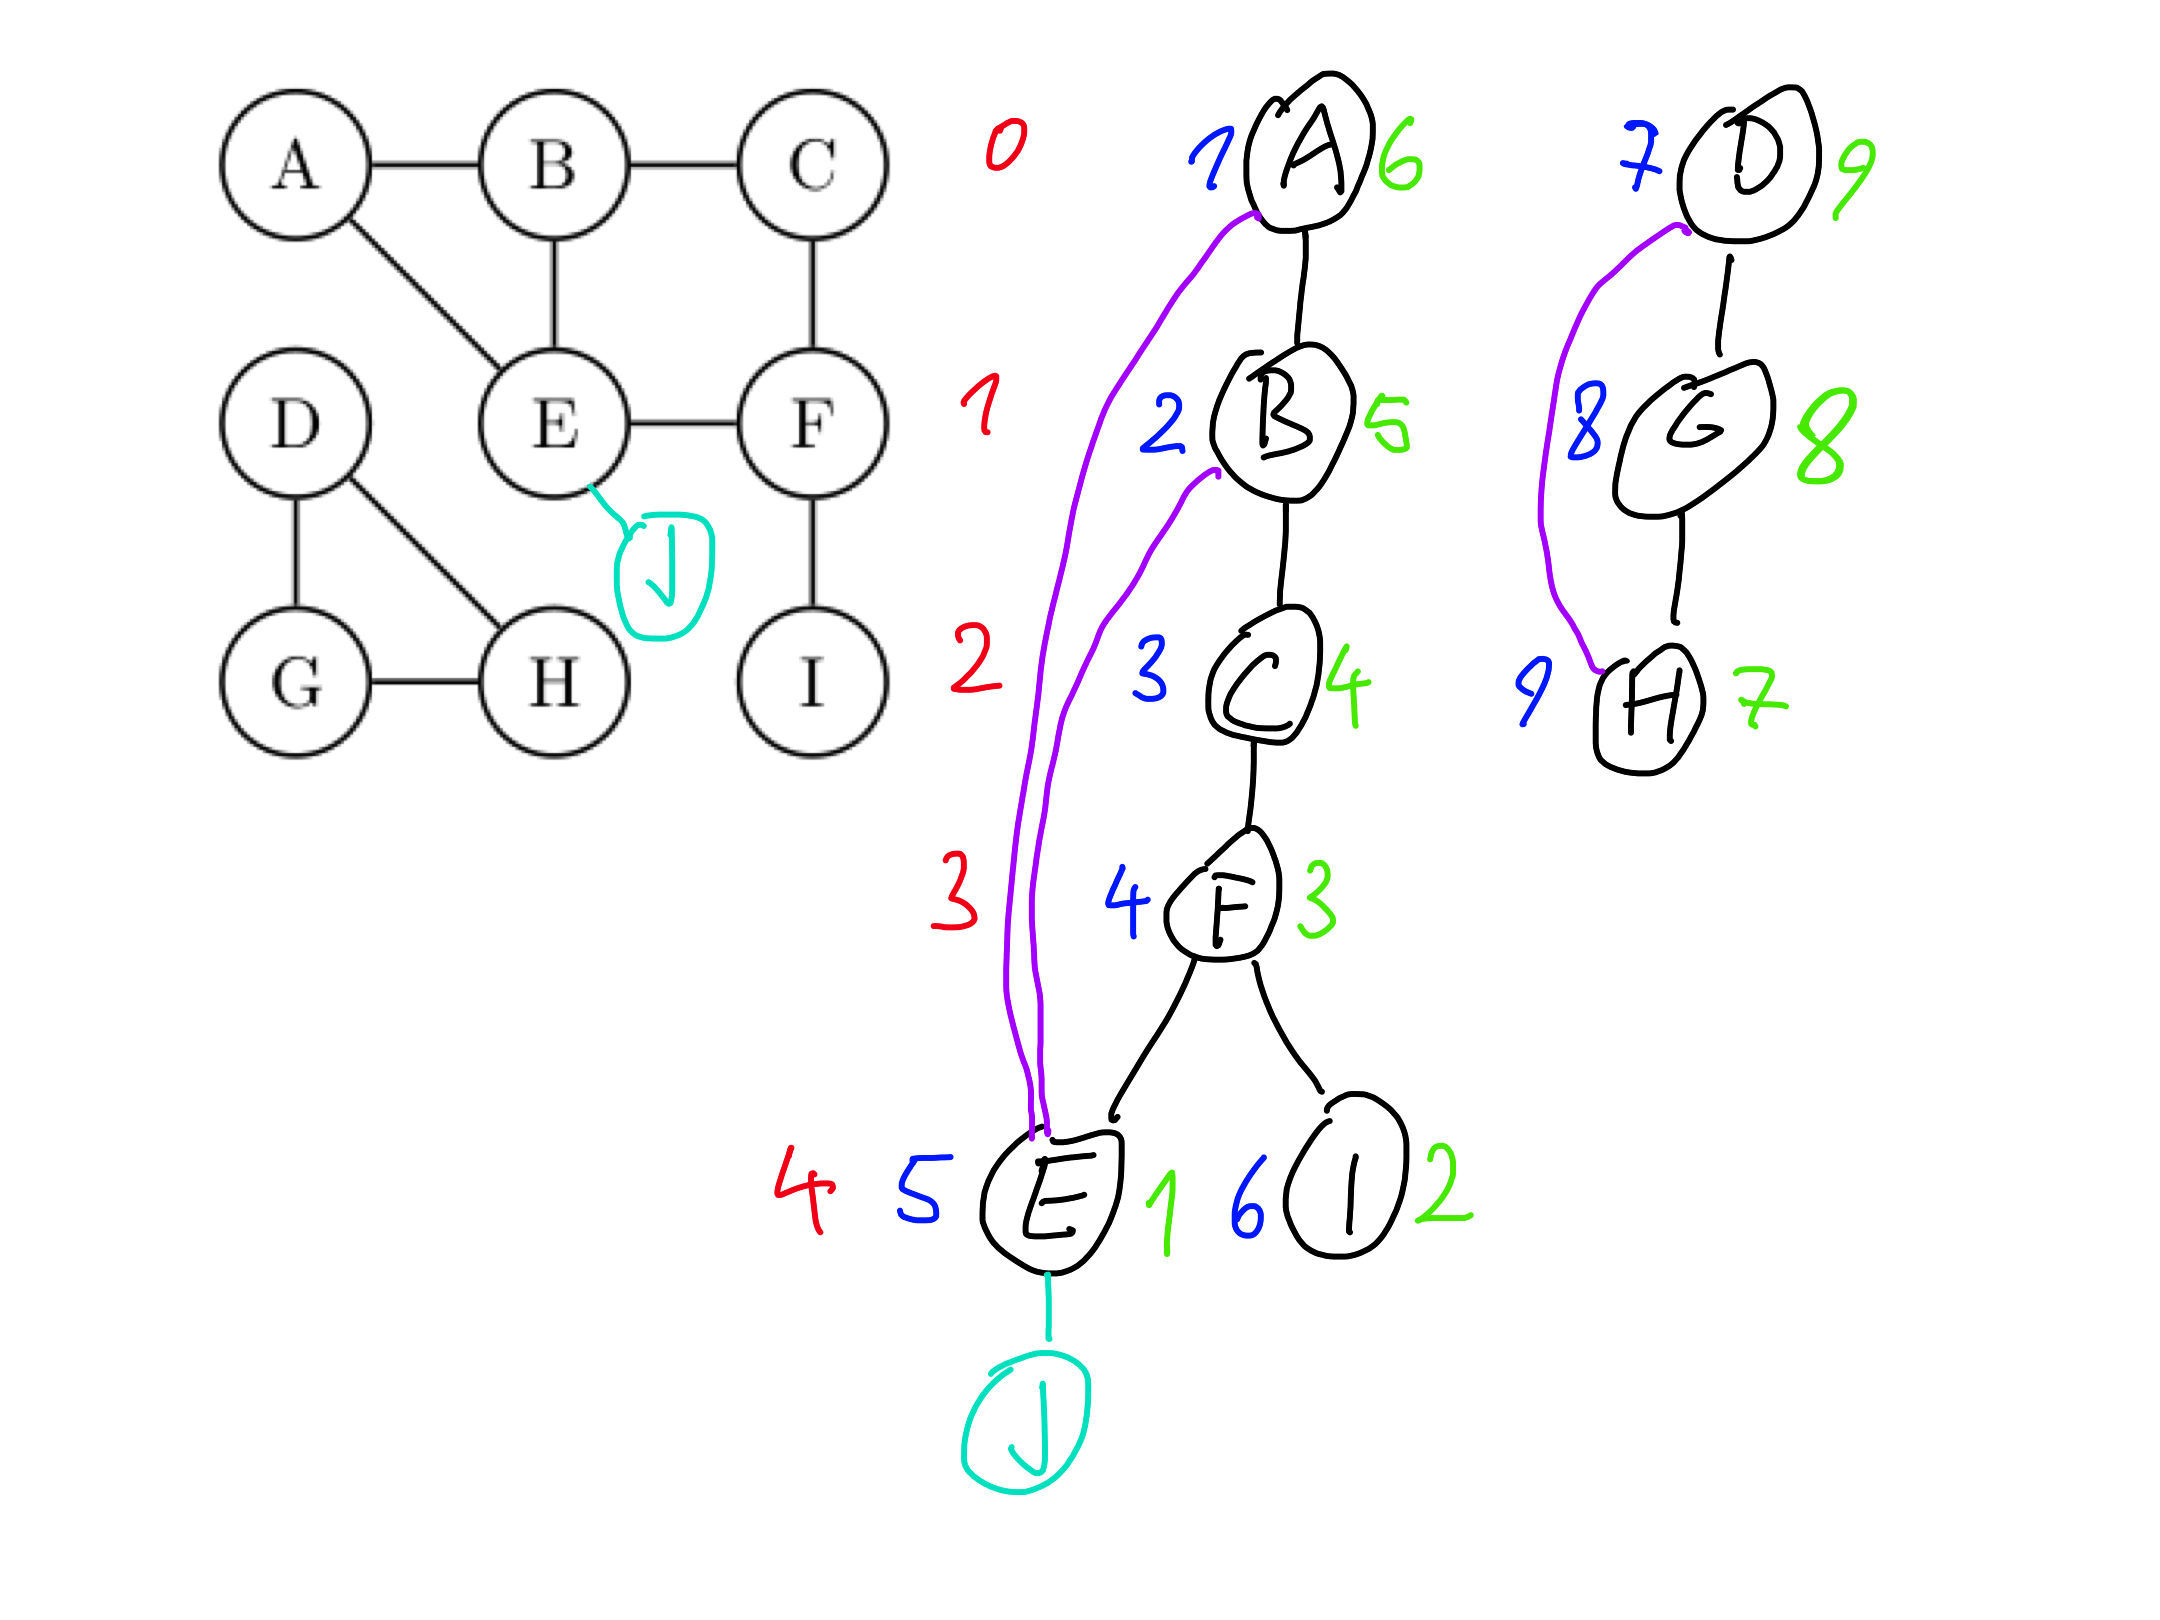 A B C
D E F
J
G H I
0 1 A 6 7 D 9
1 2 B 5 8 G 8
2 3 C 4 9 H 7
3 4 F 3
4 5 E 1 6 I 2
J